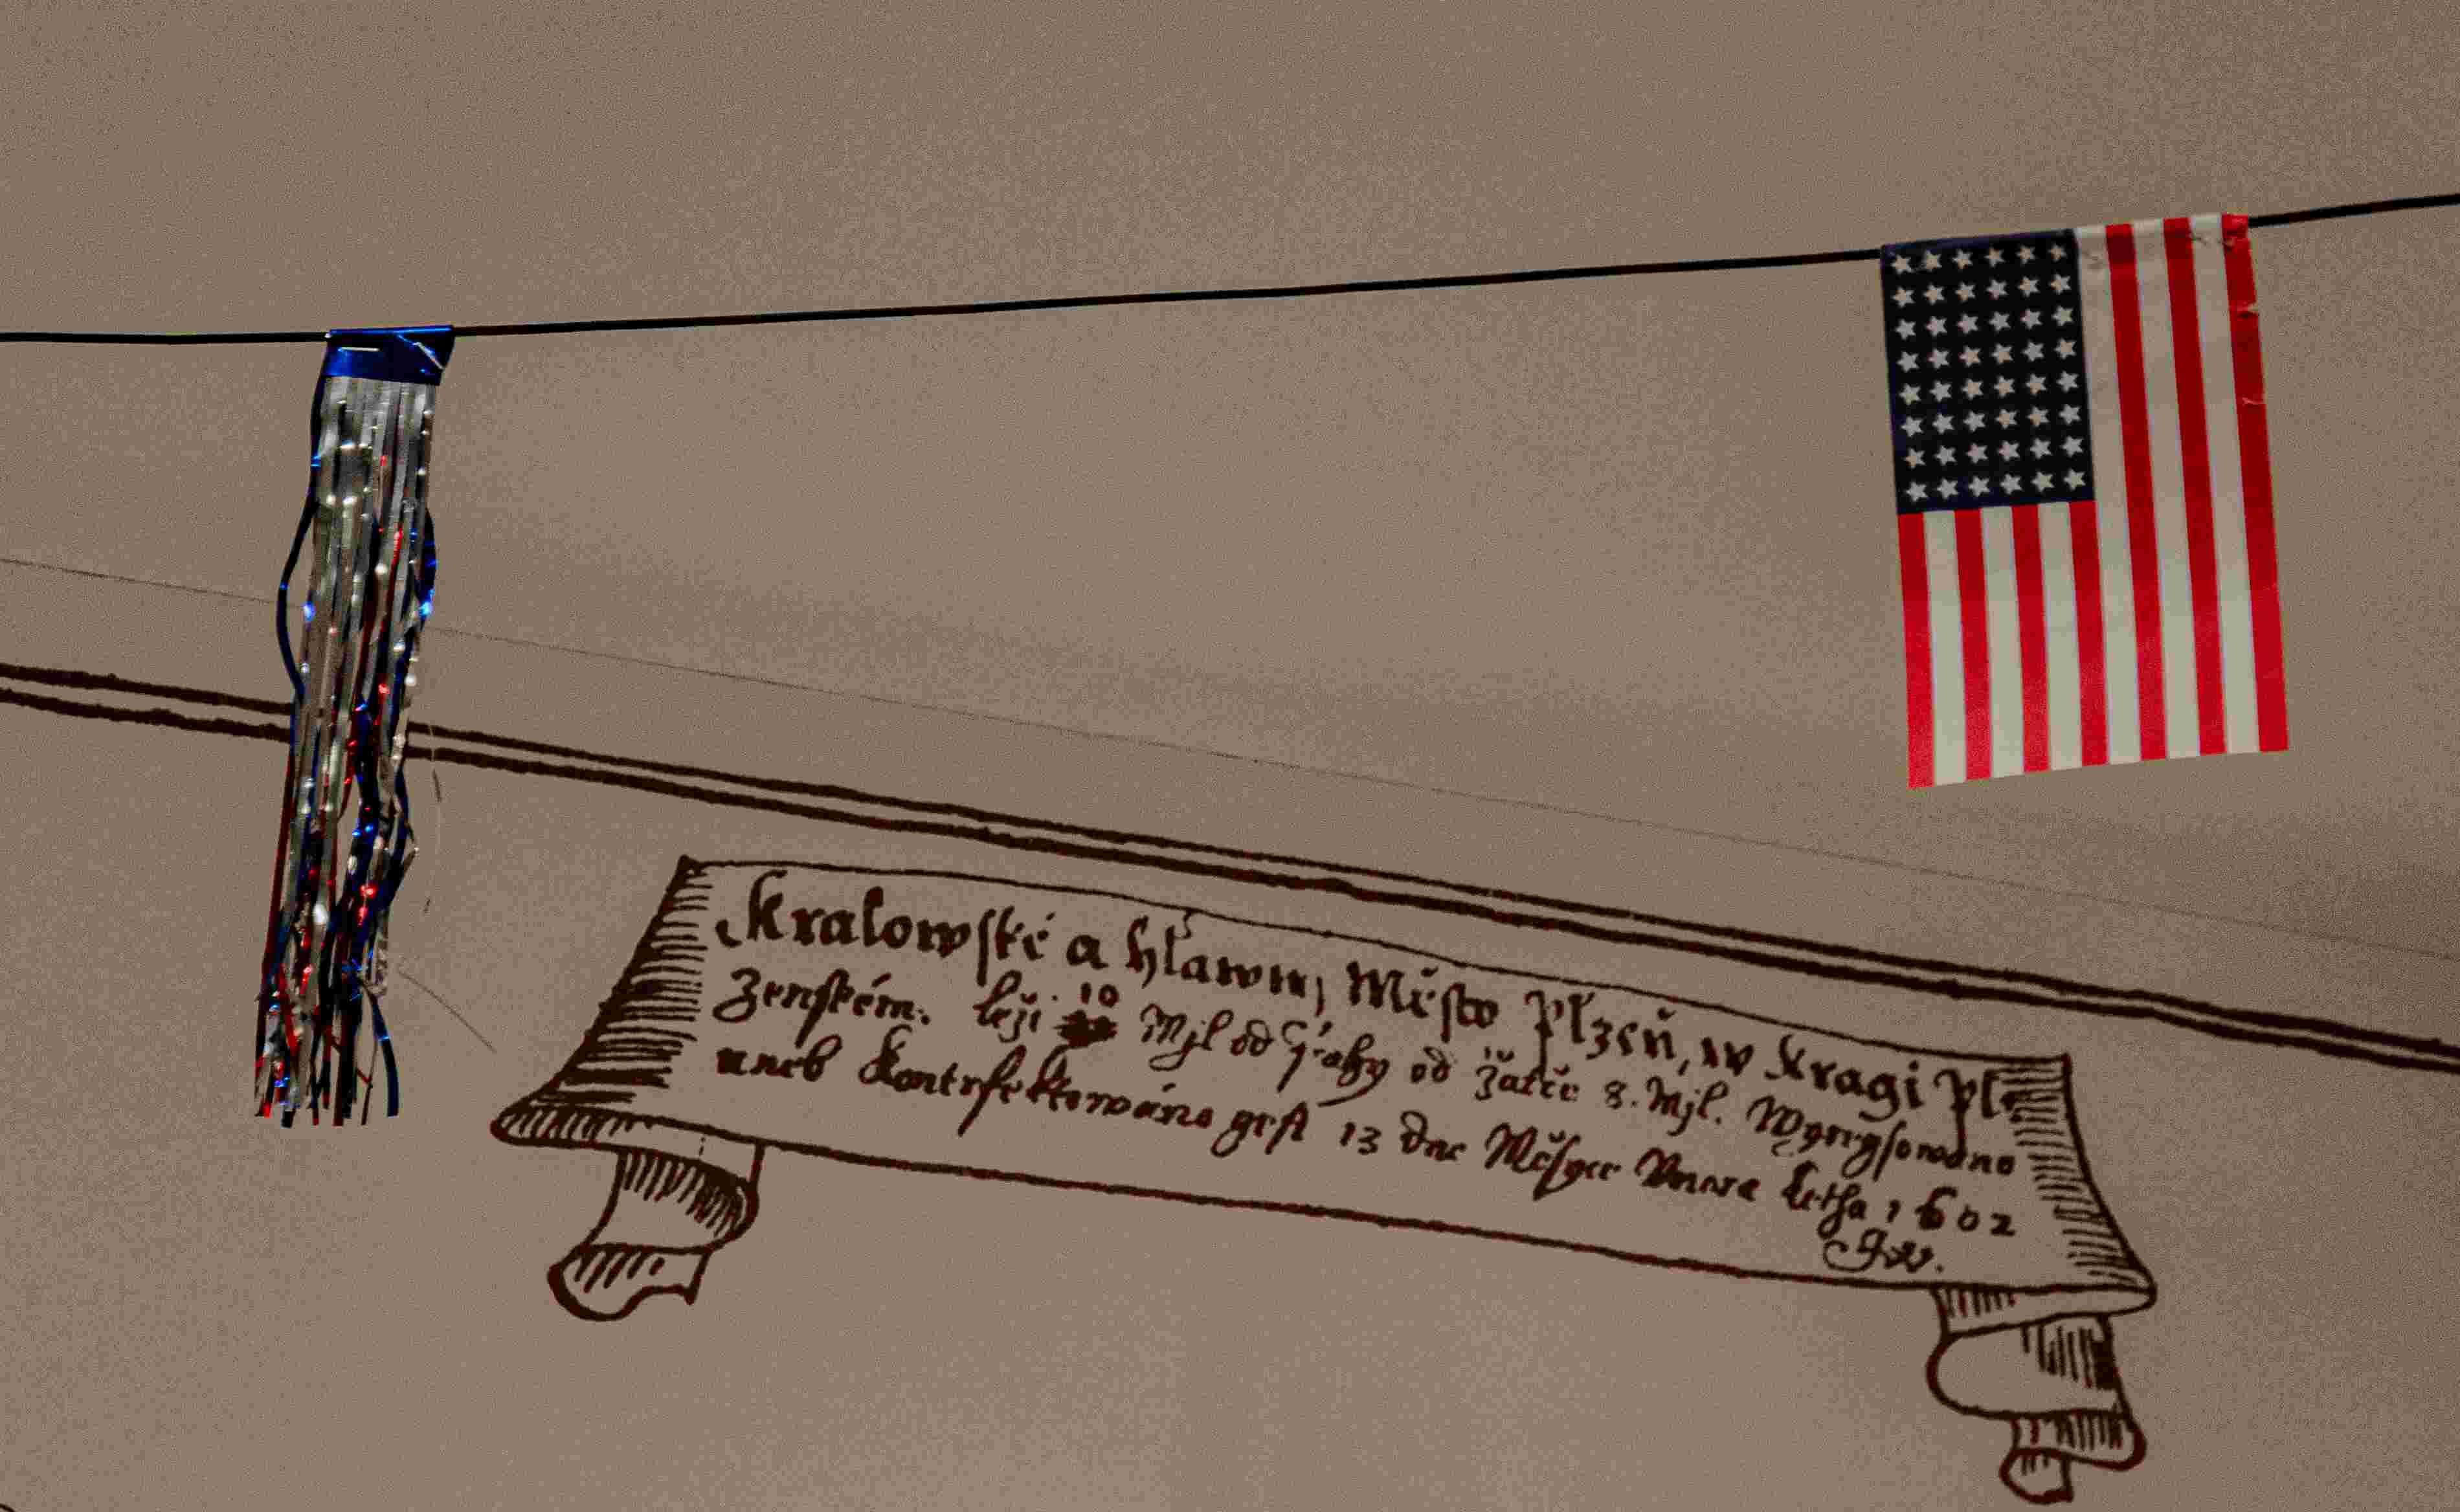 Kralowské a hlawnj Město Plzeň, w Kragi Pl
zenském. leži 10 Mjl od Prahy od Žatče 8. Mjl. Wyrysowáno
aneb Kontrfektowáno gest 13 dne Měsyce Vnora Letha 1602
JW.